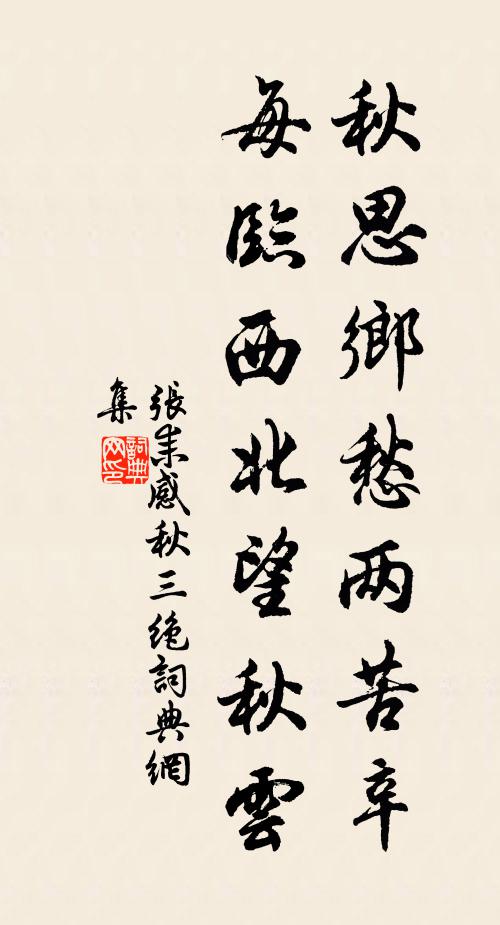 秋思鄉愁两苦辛
每臨西北望秋雲
張耒感秋三绝詞典網
集
詞典网印